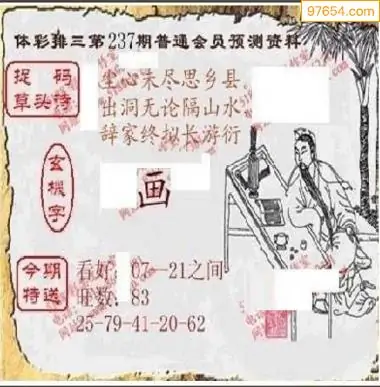 97654.com
体彩排三第237期普通会员预测资料
捉码
草头诗
尘心未尽思乡县
出洞无论隔山水
辞家终拟长游衍
玄機字
画
今期
特送
看好：07—21之间
旺数：83
25-79-41-20-62